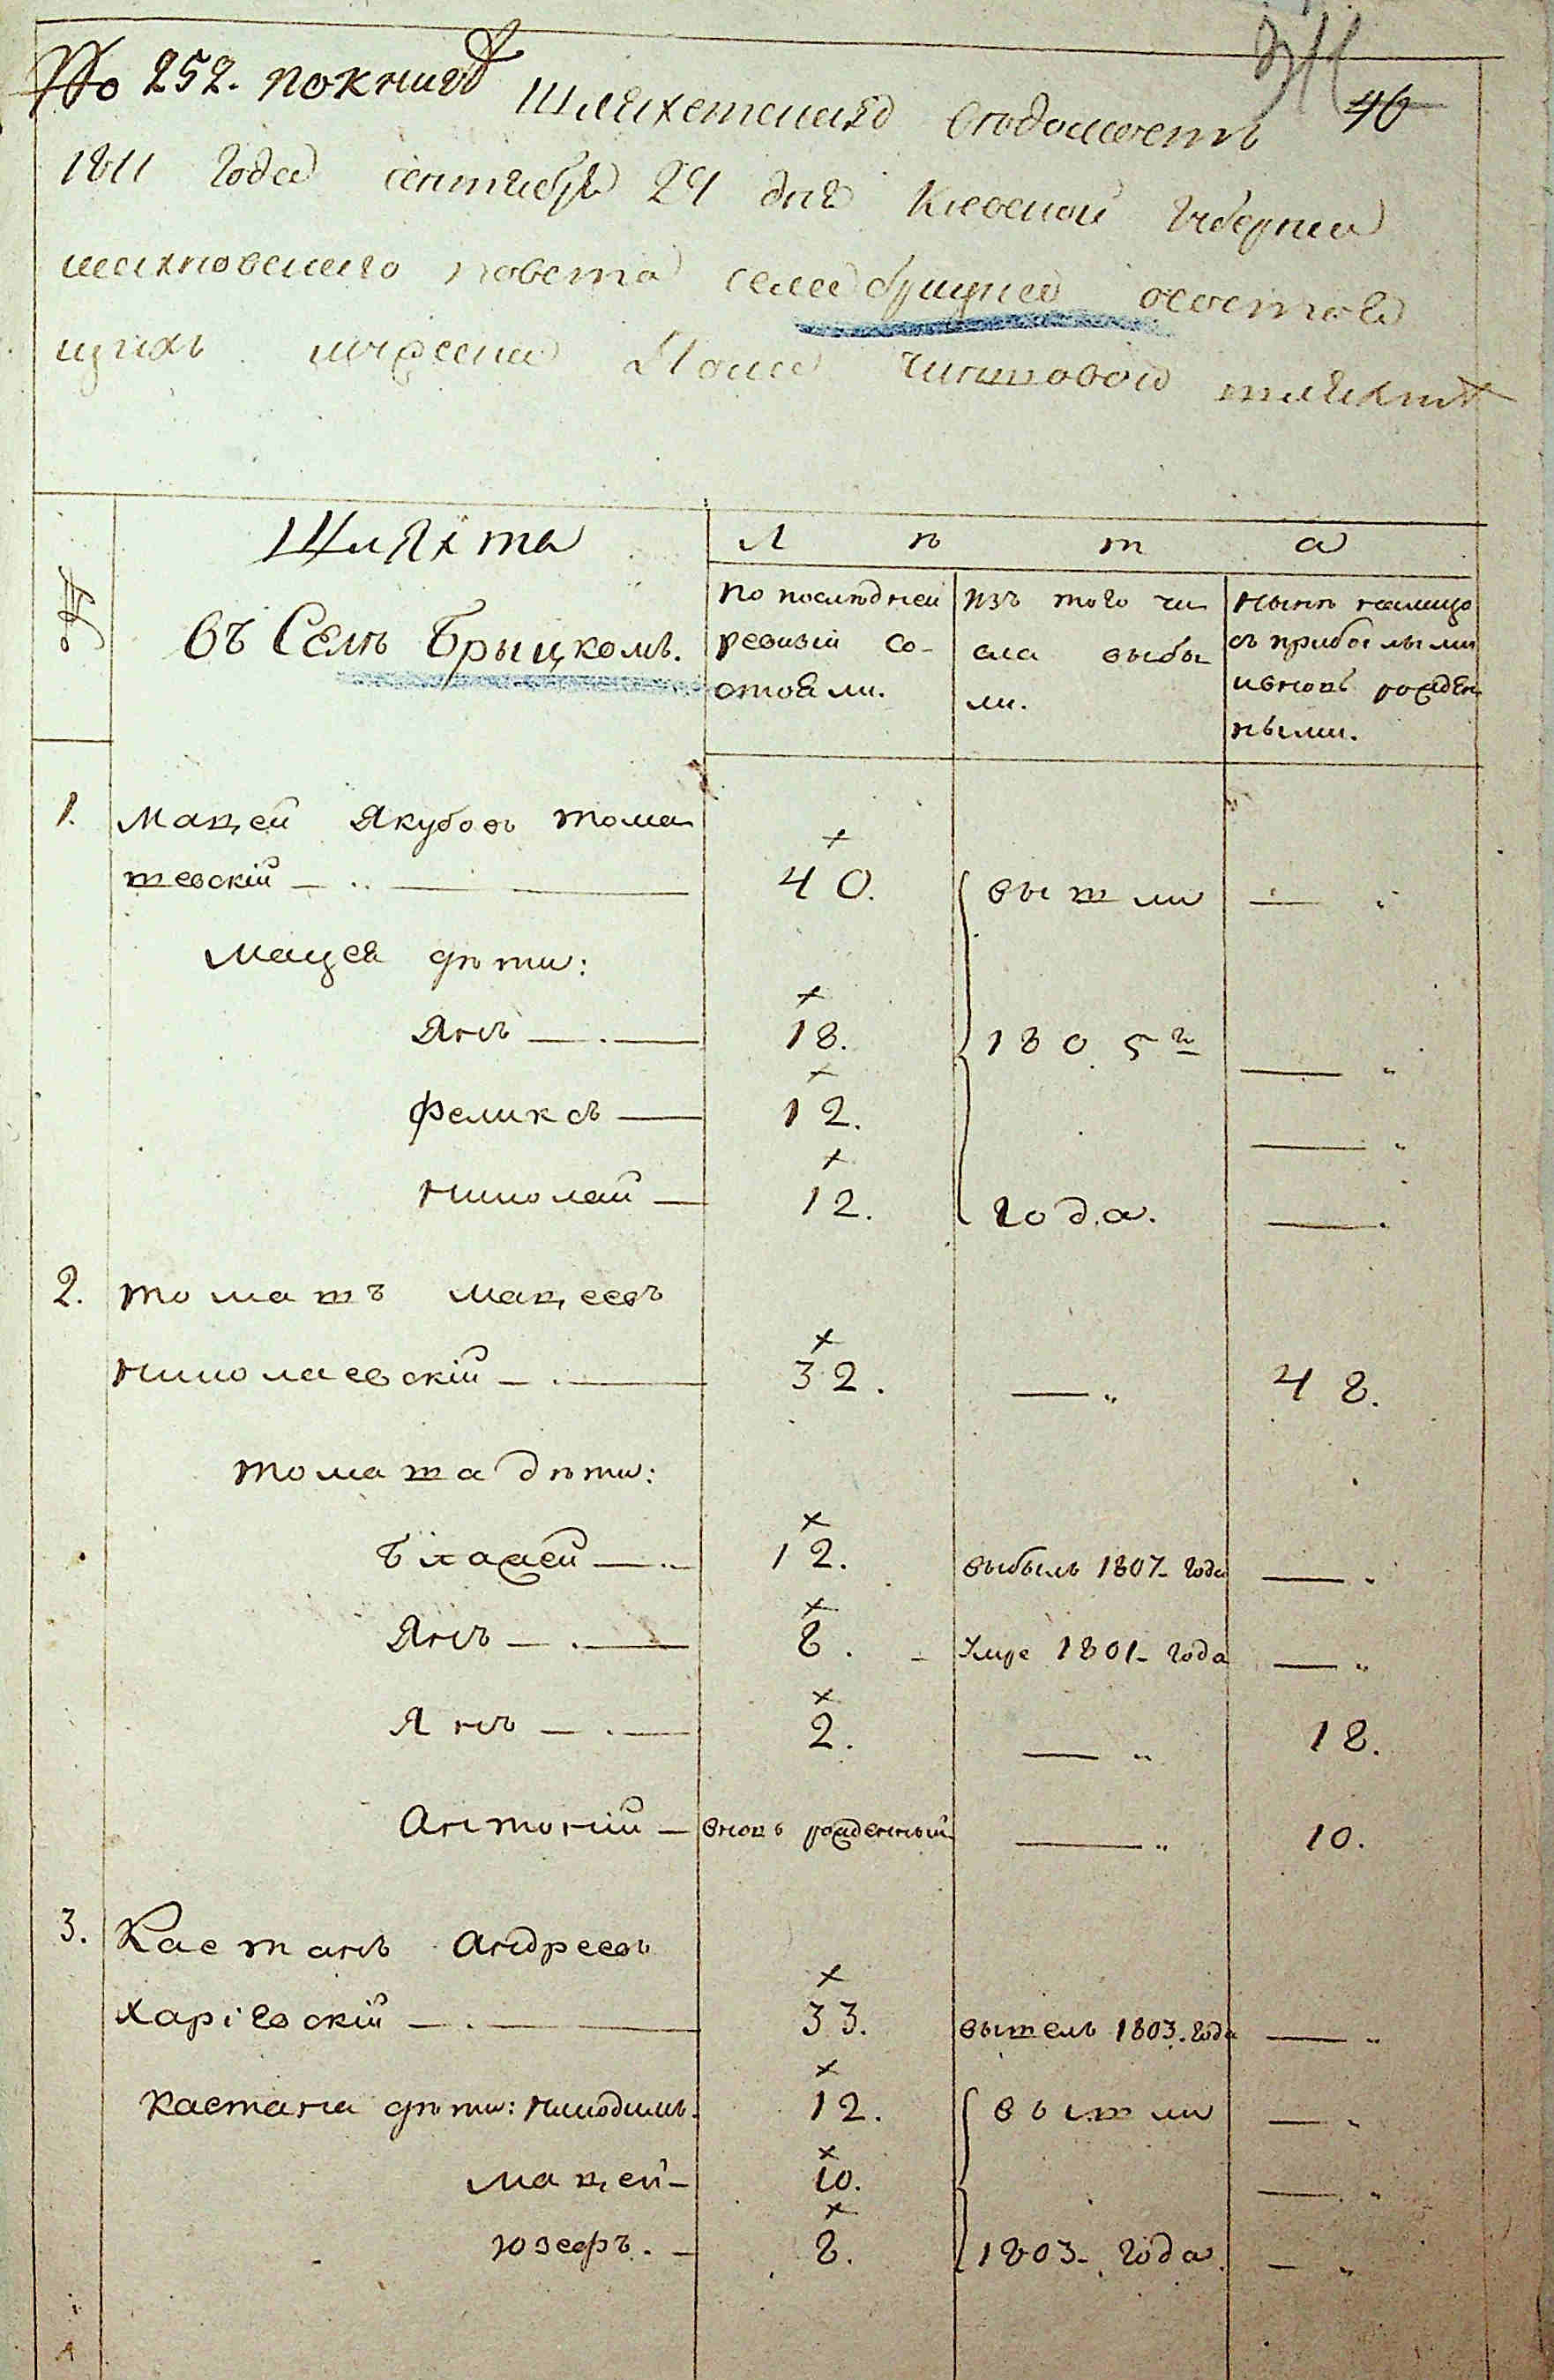 № 252. по книгѣ
Шляхетская вѣдомость 40
1811 года сентября 24 дня Киевской губернии
махновского повета села Брицкого о состоя
щихъ мужеска пола чиншовой шляхтѣ
№
Шляхта
въ Селѣ Брыцкомъ.
Л ѣ т а
по последней ревизіи со-
стояли.
изъ того чи
сла выбы
ли.
нынѣ налицо
съ прибылыми
и вновь рожден
ными.
1. Мацей Якубовъ Тома
шевскій 40. вышли
Мацея дѣти:
Янъ 18. 1805 го
Феликсъ 12.
Николай 12. года.
2. Томашъ Мацеевъ
Николаевскій 32. 48.
Томаша дѣти:
Блажей 12. выбылъ 1807 года
Янъ 8. Умре 1801 года
Янъ 2. 18.
Антоній вновь рожденный 10.
3. Каетанъ Андреевъ
Харіевскій 33. вышелъ 1803. года
Каетана дѣти: Никодимъ. 12. вышли
Мацей 10.
Юзефъ. 8. 1803 года.